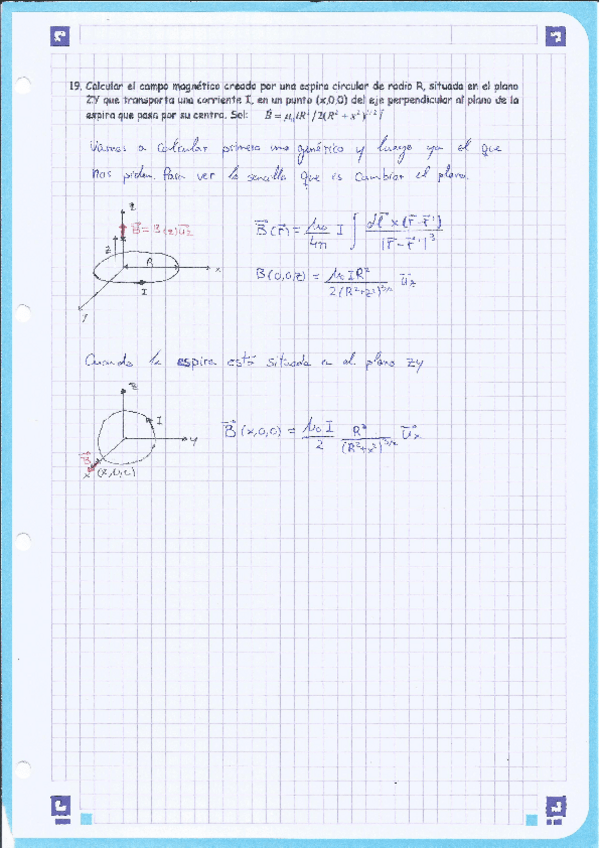 19. Calcular el campo magnético creado por una espira circular de radio R, situada en el plano
ZY que transporta una corriente I, en un punto (x,0,0) del eje perpendicular al plano de la
espira que pasa por su centro. Sol: B⃗ = μ₀IR²/2(R² + x²)^(3/2) i⃗
Vamos a calcular primero uno genérico y luego ya el que
nos piden. Para ver lo sencillo que es cambiar el plano.
z
B⃗ = B(z) u⃗z
z
R
x
I
y
B⃗(r⃗) = μ₀/4π I ∫ dl⃗ × (r⃗ - r⃗') / |r⃗ - r⃗'|³
B(0,0,z) = μ₀IR² / 2(R²+z²)^(3/2) u⃗z
Cuando la espira está situada en el plano ZY
z
I
y
B⃗
x
B⃗(x,0,0) = μ₀I/2 R²/(R²+x²)^(3/2) u⃗x